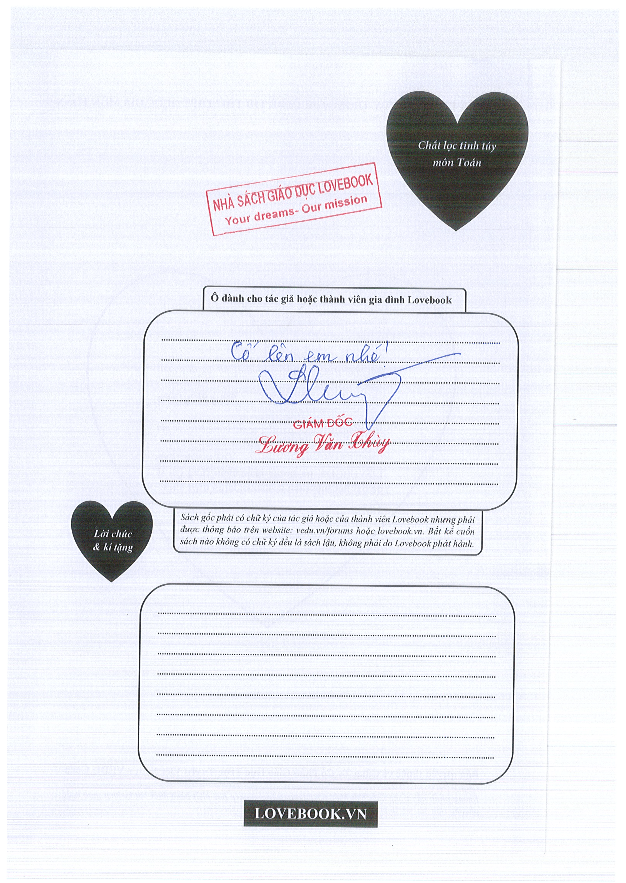 Chắt lọc tinh túy
môn Toán
NHÀ SÁCH GIÁO DỤC LOVEBOOK
Your dreams- Our mission
Ô dành cho tác giả hoặc thành viên gia đình Lovebook
Cố lên em nhé!
GIÁM ĐỐC
Lương Văn Thùy
Sách gốc phải có chữ ký của tác giả hoặc của thành viên Lovebook nhưng phải
được thông báo trên website: vedu.vn/forums hoặc lovebook.vn. Bất kể cuốn
sách nào không có chữ ký đều là sách lậu, không phải do Lovebook phát hành.
Lời chúc
& kí tặng
LOVEBOOK.VN